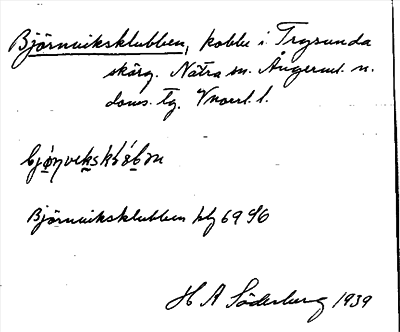 Björnviksklubben, kobbe i Trysunda
skärg. Nätra sn. Ångerml. n.
doms. tg. Vnorrl. l.
bjö́ŋveksklö̀bm
Björnviksklubben blg 69 SO
H A Söderberg 1939